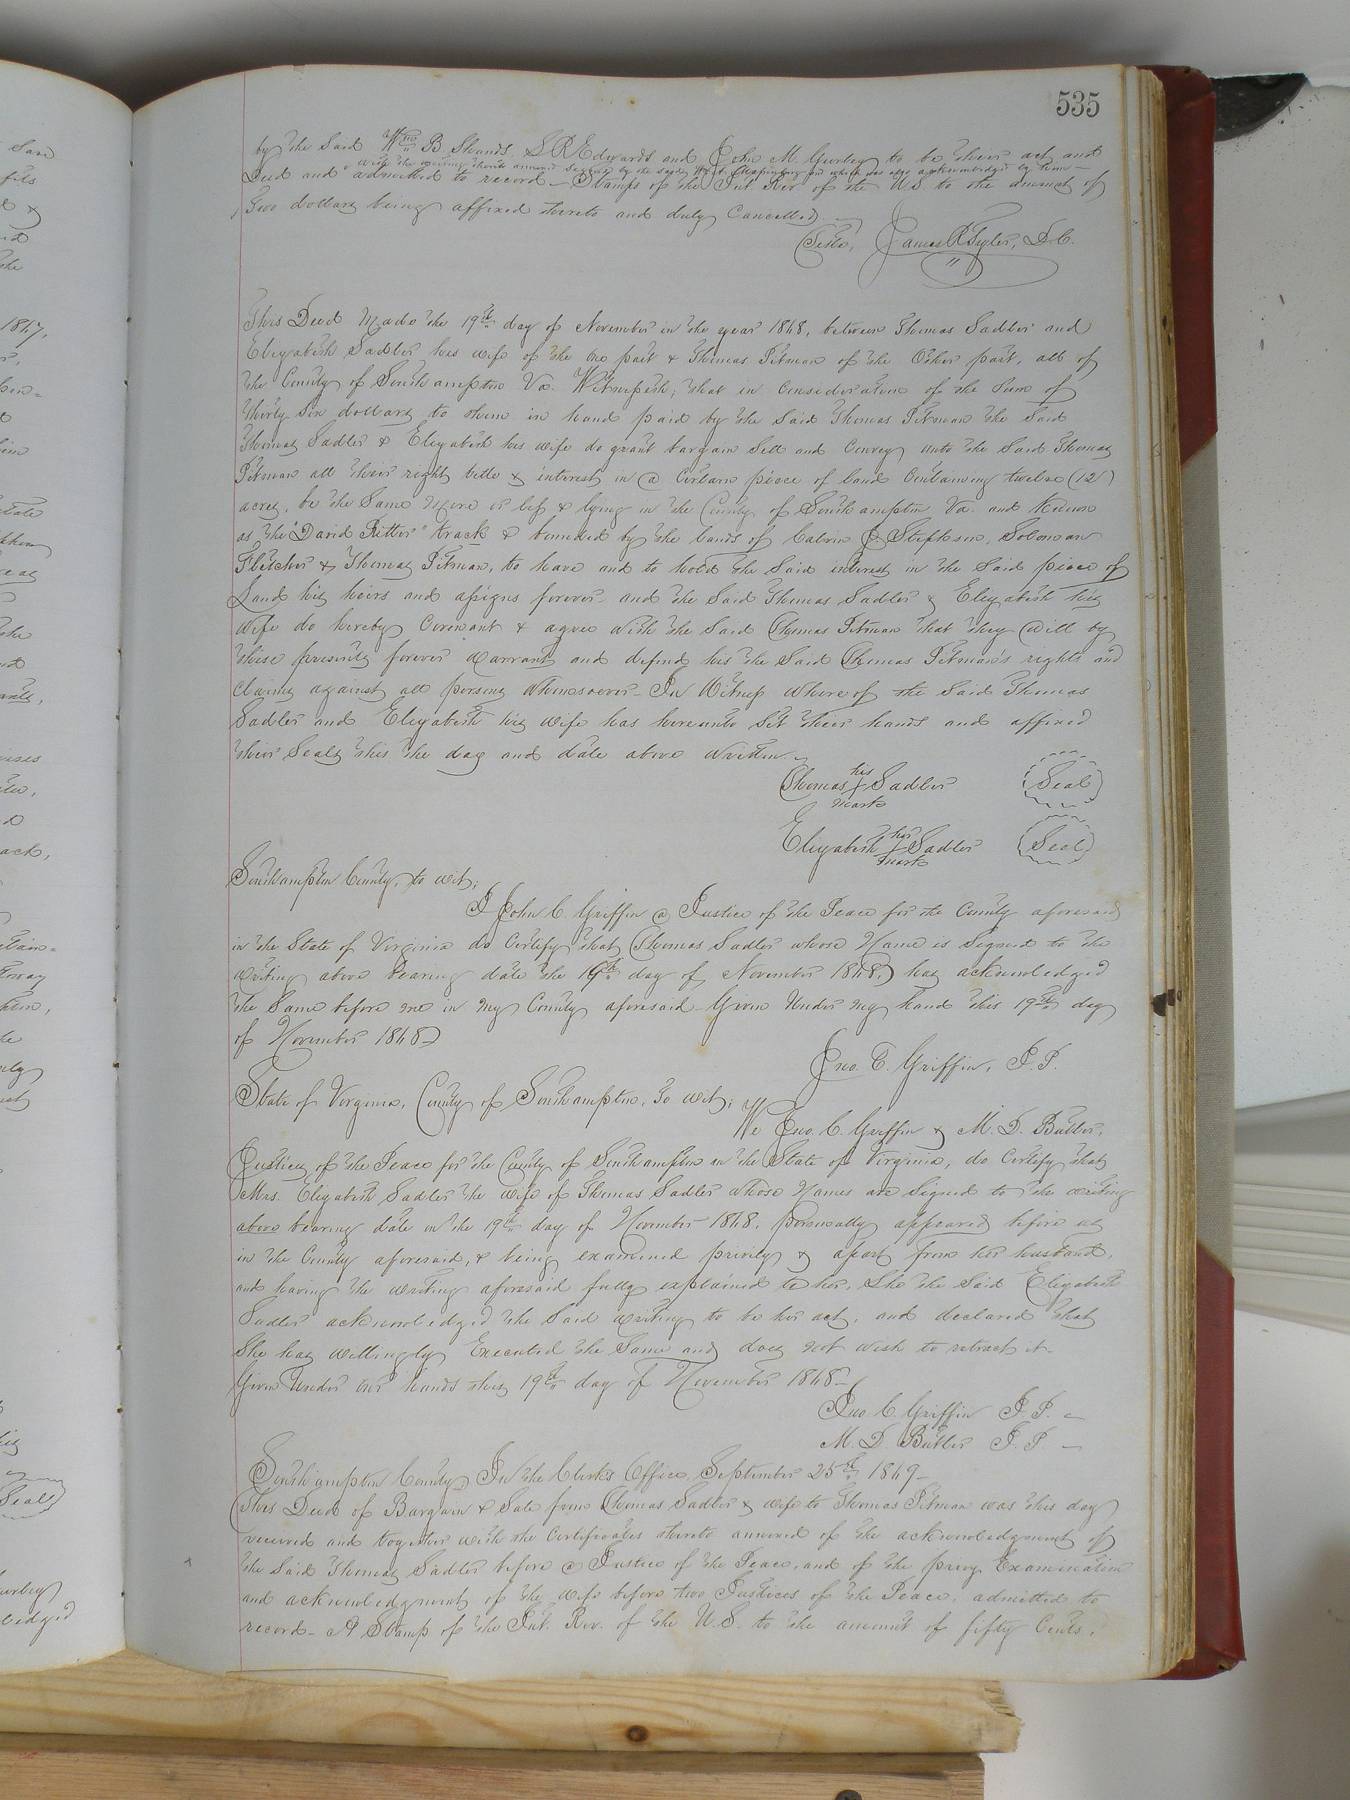 535
by the Said Wm B. Shands, S R Edwards and John M. Gurley to be their act and
with the writing thereto annexed signed by the said and which was also acknowledged by him
Deed and admitted to record – Stamps of the Int. Rev. of the U.S. to the amount of
Two dollars being affixed thereto and duly Cancelled
Teste, James R Tyler, D.C.
This Deed Made the 19th day of November in the year 1868, between Thomas Sadler and
Elizabeth Sadler his wife of the one part & Thomas Pitman of the Other part, all of
the County of Southampton Va. Witnesseth; that in Consideration of the Sum of
thirty Six dollars to them in hand paid by the Said Thomas Pitman the Said
Thomas Sadler & Elizabeth his wife do grant bargain Sell and Convey unto the Said Thomas
Pitman all their right title & interest in a Certain piece of land Containing twelve (12)
acres, be the Same More or less & lying in the County of Southampton Va. and Known
as the "David Ritter" track & bounded by the lands of Calvin J. Stephson, Solomon
Fletcher & Thomas Pitman, to have and to hold the Said interest in the Said piece of
Land his heirs and assigns forever and the Said Thomas Sadler & Elizabeth his
wife do hereby Covenant & agree with the Said Thomas Pitman that they will by
these presents forever warrant and defend his the Said Thomas Pitman's rights and
claims against all persons whomsoever – In Witness whereof the Said Thomas
Sadler and Elizabeth his wife has hereunto Set their hands and affixed
their Seals this the day and date above written.
his
Thomas + Sadler Seal
mark
her
Elizabeth + Sadler Seal
mark
Southampton County, to wit;
I John C. Griffin a Justice of the Peace for the County aforesaid
in the State of Virginia do Certify that Thomas Sadler whose Name is Signed to the
writing above bearing date the 19th day of November 1868, has acknowledged
the Same before me in my County aforesaid Given Under my hand this 19th day
of November 1868
Jno. C. Griffin, J.P.
State of Virginia, County of Southampton, To wit;
We Jno. C. Griffin & M. D. Butler,
Justices of the Peace for the County of Southampton in the State of Virginia, do Certify that
Mrs. Elizabeth Sadler the wife of Thomas Sadler whose Names are Signed to the writing
above bearing date on the 19th day of November 1868, personally appeared before us
in the County aforesaid, & being examined privily & apart from her husband,
and having the writing aforesaid fully explained to her, She the Said Elizabeth
Sadler acknowledged the Said writing to be her act, and declared that
She has willingly Executed the Same and does not wish to retract it.
Given Under our hands this 19th day of November 1868
Jno. C. Griffin J.P.
M. D. Butler J.P.
Southampton County, In the Clerk's Office, September 25th 1869
This Deed of Bargain & Sale from Thomas Sadler & wife to Thomas Pitman was this day
received and together with the Certificates thereto annexed of the acknowledgment of
the Said Thomas Sadler before a Justice of the Peace, and of the privy Examination
and acknowledgment of the wife before two Justices of the Peace, admitted to
record – A Stamp of the Int. Rev. of the U.S. to the amount of fifty Cents,